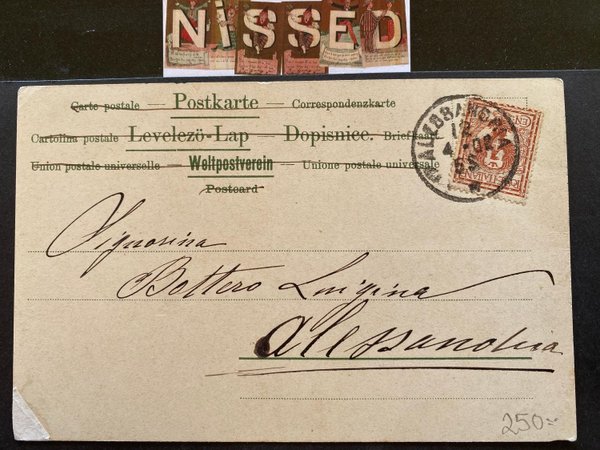 NiSSED
Carte postale — Postkarte — Correspondenzkarte
Cartolina postale — Levelező-Lap — Dopisnice. Brief kaart
Union postale universelle — Weltpostverein — Unione postale universale
Postcard
Signorina
Bottero Luigina
Alessandria
250=